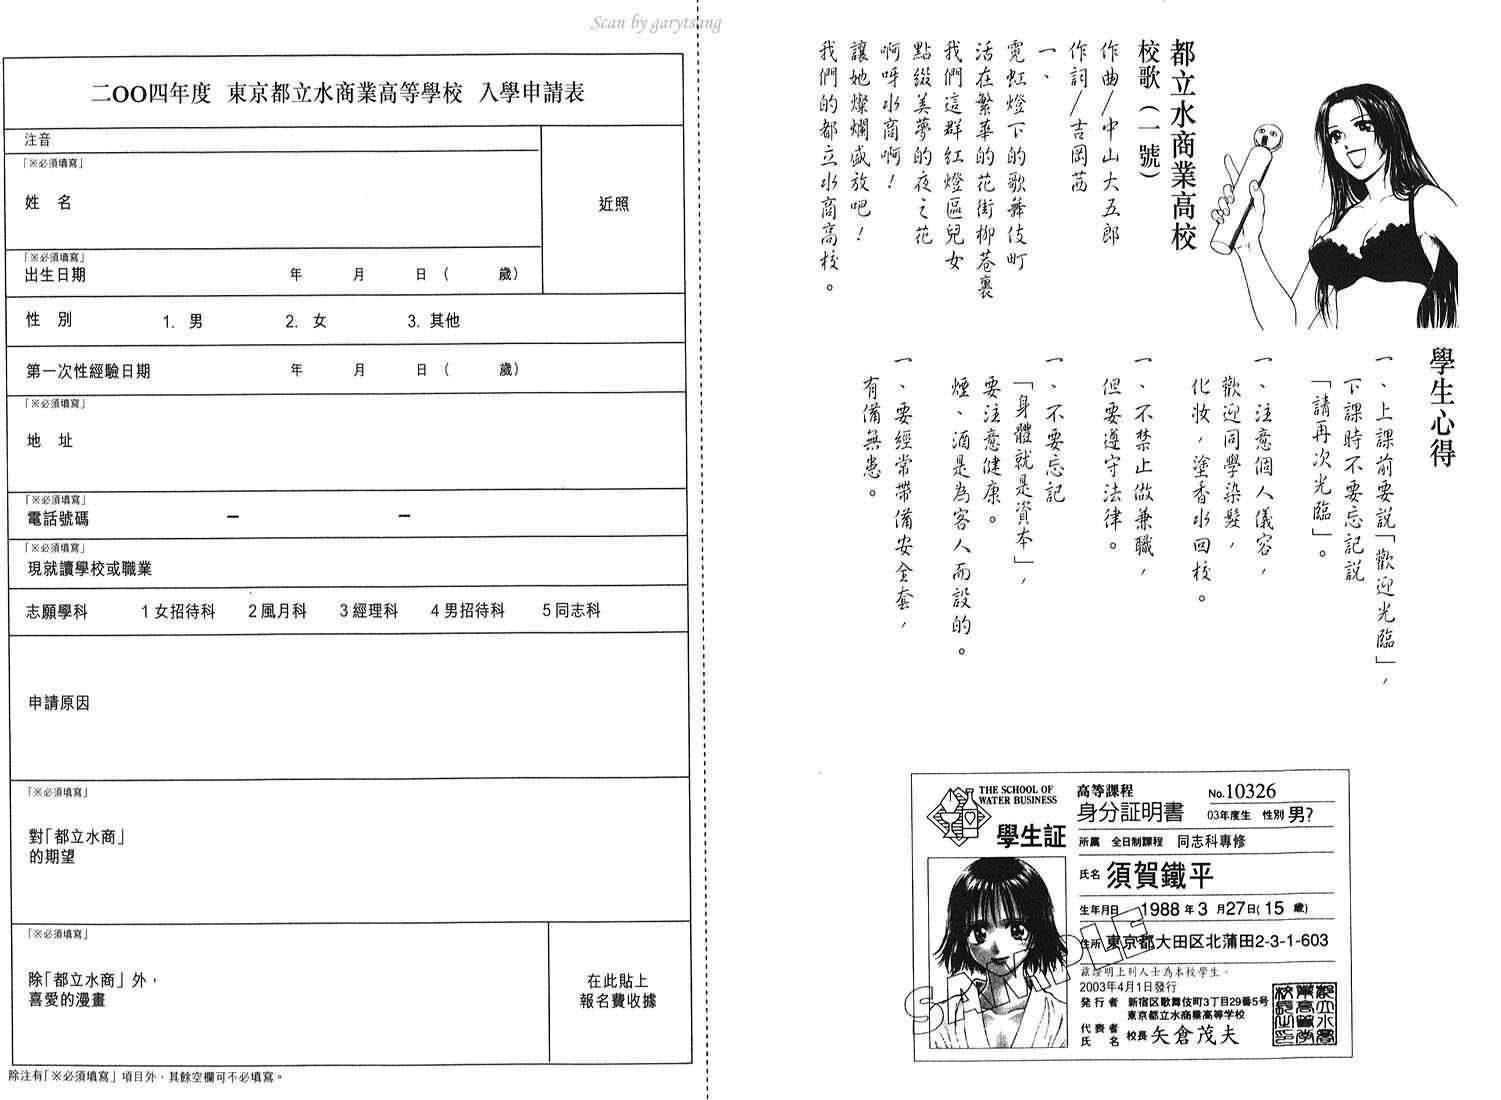 Scan by garytsang
二OO四年度 東京都立水商業高等學校 入學申請表
注音
「※必須填寫」
姓 名
近照
「※必須填寫」
出生日期 年 月 日 ( 歲)
性 別 1. 男 2. 女 3. 其他
第一次性經驗日期 年 月 日 ( 歲)
「※必須填寫」
地 址
「※必須填寫」
電話號碼 – –
「※必須填寫」
現就讀學校或職業
志願學科 1女招待科 2風月科 3經理科 4男招待科 5同志科
申請原因
「※必須填寫」
對「都立水商」
的期望
「※必須填寫」
除「都立水商」外，
喜愛的漫畫
在此貼上
報名費收據
除注有「※必須填寫」項目外，其餘空欄可不必填寫。
都立水商業高校
校歌（一號）
作曲/中山大五郎
作詞/吉岡茜
一、
霓虹燈下的歌舞伎町
活在繁華的花街柳巷裏
我們這群紅燈區兒女
點綴美夢的夜之花
啊呀水商啊！
讓她燦爛盛放吧！
我們的都立水商高校。
學生心得
一、上課前要說「歡迎光臨」，
下課時不要忘記說
「請再次光臨」。
一、注意個人儀容，
歡迎同學染髮，
化妝，塗香水回校。
一、不禁止做兼職，
但要遵守法律。
一、不要忘記
「身體就是資本」，
要注意健康。
煙、酒是為客人而設的。
一、要經常帶備安全套，
有備無患。
THE SCHOOL OF
WATER BUSINESS
學生証
高等課程
身分証明書
No.10326
03年度生 性別 男?
所屬 全日制課程 同志科專修
氏名 須賀鐵平
生年月日 1988 年 3 月 27 日( 15 歲)
住所 東京都大田区北蒲田2-3-1-603
茲證明上列人士為本校學生。
2003年4月1日發行
発行者 新宿区歌舞伎町3丁目29番5号
東京都立水商業高等学校
代表者
氏名 校長 矢倉茂夫
SAMPLE